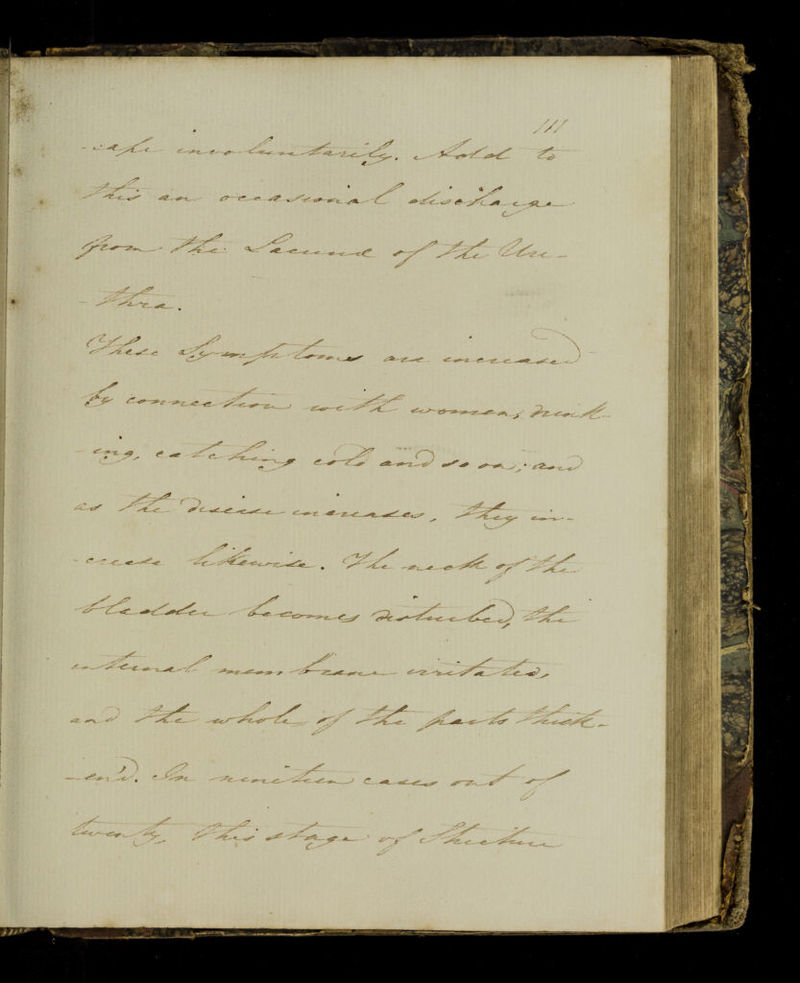 111
-cape involuntarily. Add to
this an occasional discharge
from the Lacunæ of the Ure-
-thra.
These Symptoms are increased
by connection with women, drink-
-ing, catching cold and so on; and
as the disease increases, they in-
-crease likewise. The neck of the
bladder becomes disturbed, the
internal membrane irritated,
and the whole of the parts thick-
-en'd. In nineteen cases out of
twenty, this stage of Stricture